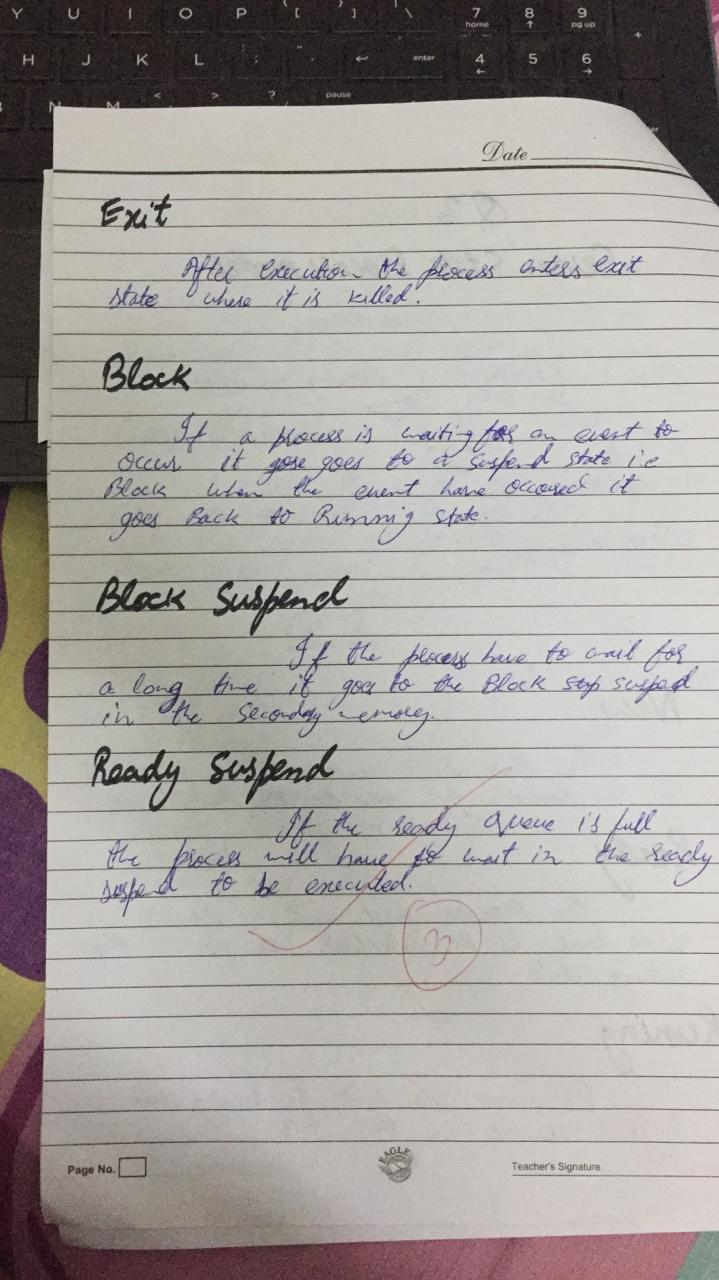 Y U I O P { [ } ] | \ 7 home 8 ↑ 9 pg up +
H J K L : ; " ' ↵ enter 4 ← 5 6 →
B N M < > ? pause
Date
Exit
After execution the process enters exit
state where it is killed.
Block
If a process is waiting for an event to
occur it gose goes to a suspend state i.e
Block when the event have occured it
goes Back to Running state.
Block Suspend
If the process have to wait for
a long time it goes to the Block stop suspend
in the Secondary memory.
Ready Suspend
If the ready Queue is full
the process will have to wait in the ready
suspend to be executed.
3
Page No.
EAGLE
Teacher's Signature